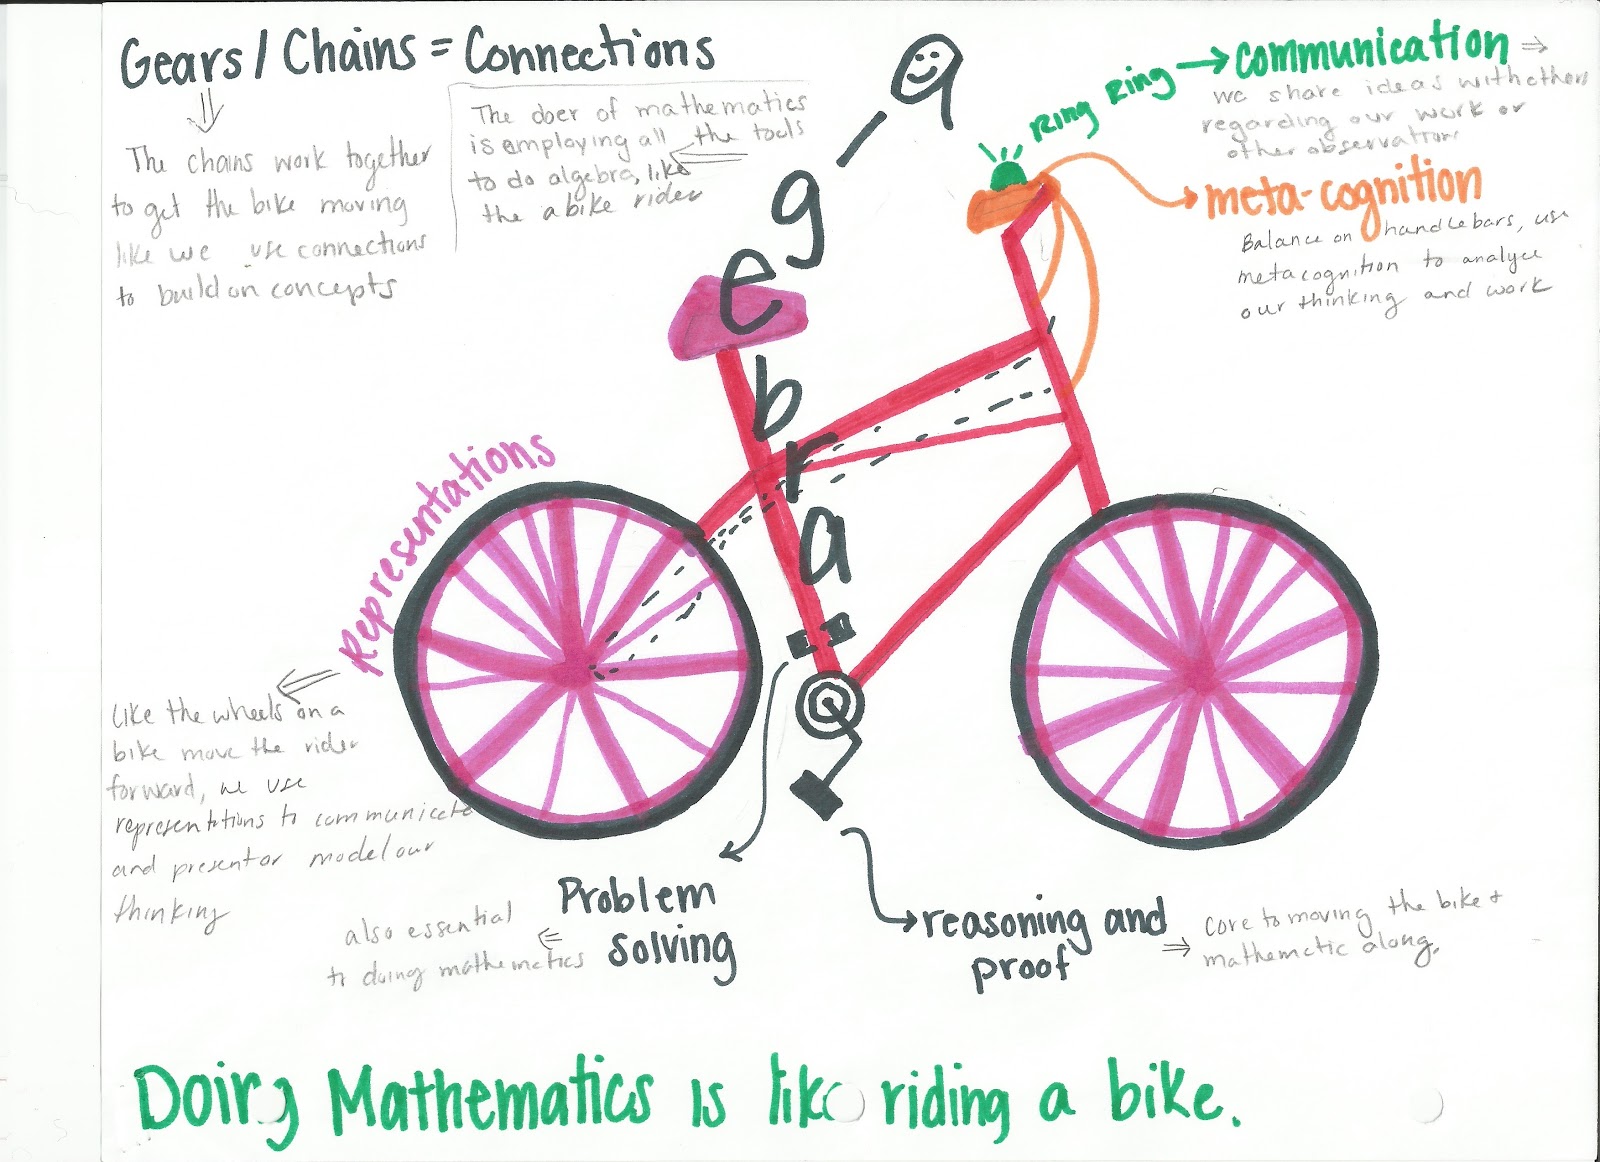 Gears / Chains = Connections
The chains work together
to get the bike moving
like we use connections
to build on concepts
The doer of mathematics
is employing all the tools
to do algebra, like
the a bike rider
algebra
Ring Ring → communication ⇒
we share ideas with others
regarding our work or
other observations
meta-cognition
Balance on handlebars, use
metacognition to analyze
our thinking and work
Representations
Like the wheels on a
bike move the rider
forward, we use
representations to communicate
and present or model our
thinking
Problem
solving
also essential
to doing mathematics
reasoning and
proof
core to moving the bike +
mathematic along.
Doing Mathematics is like riding a bike.